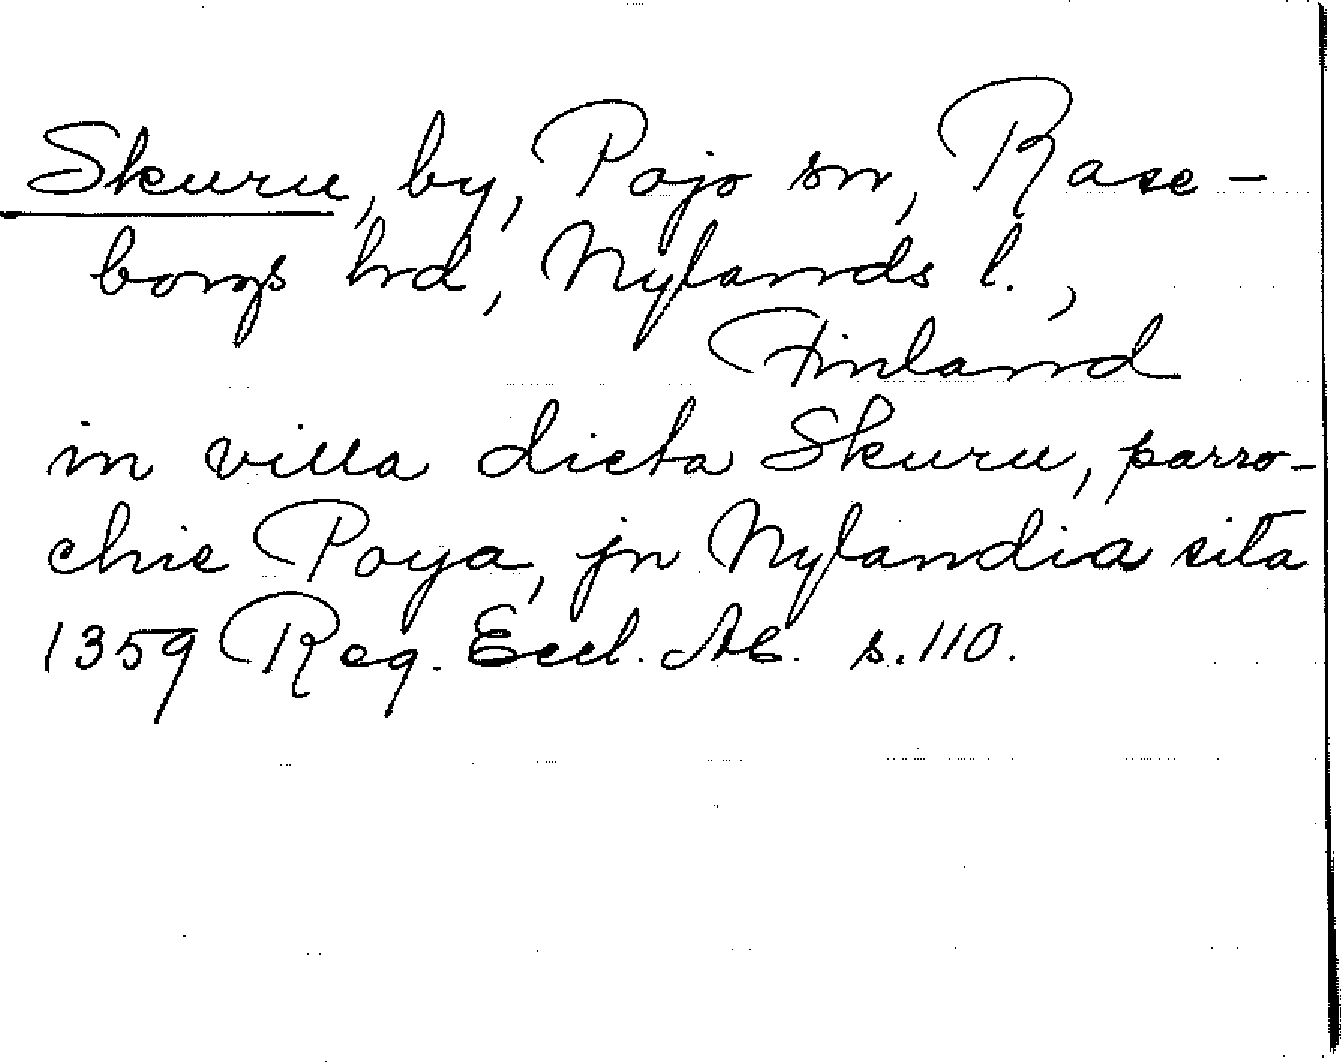 Skuru, by, Pojo sn, Rase-
borgs hrd, Nylands l.,
Finland
in villa dicta Skuru, parro-
chie Poya, jn Nylandia sita
1359 Reg. Eccl. Ab. s. 110.